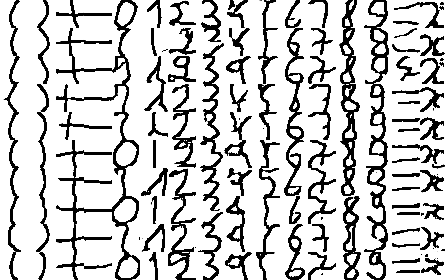 ( ) + - 0 1 2 3 4 5 6 7 8 9 =
( ) + - 0 1 2 3 4 5 6 7 8 9 = x
( ) + - 0 1 2 3 4 5 6 7 8 9
( ) + - 0 1 2 3 4 5 6 7 8 9 = x
( ) + - 0 1 2 3 4 5 6 7 8 9 = x
( ) + - 0 1 2 3 4 5 6 7 8 9 = x
( ) + - 0 1 2 3 4 5 6 7 8 9 = x
( ) + - 0 1 2 3 4 5 6 7 8 9 = x
( ) + - 0 1 2 3 4 5 6 7 8 9 = x
( ) + - 0 1 2 3 4 5 6 7 8 9 = x